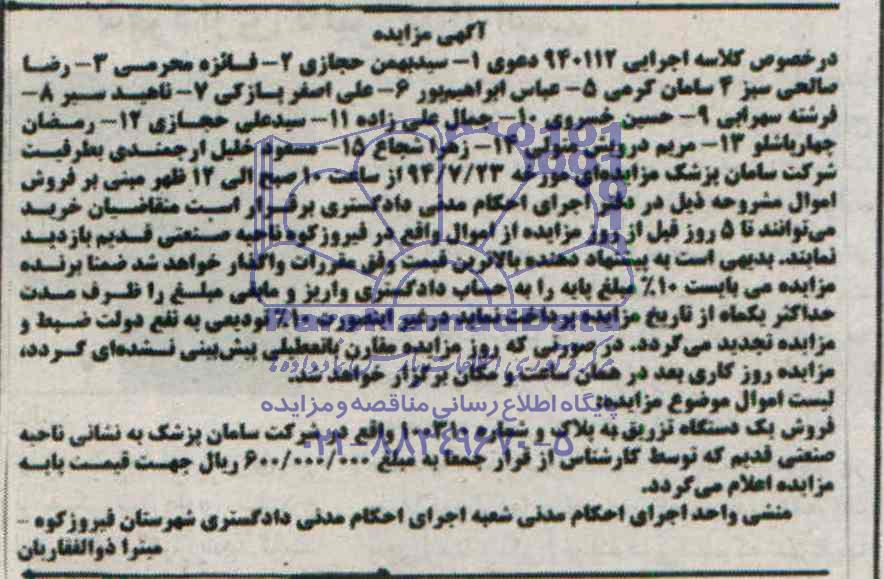 آگهی مزایده
درخصوص کلاسه اجرایی ۹۴۰۱۱۲ دعوی ۱- سیدبهمن حجازی ۲- فائزه محرمی ۳- رضا
صالحی سبز ۴ سامان کرمی ۵- عباس ابراهیم‌پور ۶- علی اصغر بازکی ۷- ناهید سیر ۸-
فرشته سهرابی ۹- حسین خسروی ۱۰- جمال علی زاده ۱۱- سیدعلی حجازی ۱۲- رمضان
چهارباشلو ۱۳- مریم درویش متولی ۱۴- زهرا شجاع ۱۵- مسعود خلیل ارجمندی بطرفیت
شرکت سامان پزشک مزایده‌ای مورخه ۹۴/۷/۲۳ از ساعت ۱۰ صبح الی ۱۲ ظهر مبنی بر فروش
اموال مشروحه ذیل در دفتر اجرای احکام مدنی دادگستری برقرار است متقاضیان خرید
می‌توانند تا ۵ روز قبل از روز مزایده از اموال واقع در فیروزکوه ناحیه صنعتی قدیم بازدید
نمایند. بدیهی است به پیشنهاد دهنده بالاترین قیمت وفق مقررات واگذار خواهد شد ضمنا برنده
مزایده می بایست ۱۰٪ مبلغ پایه را به حساب دادگستری واریز و مابقی مبلغ را ظرف مدت
حداکثر یکماه از تاریخ مزایده پرداخت نماید در غیر اینصورت ۱۰٪ تودیعی به نفع دولت ضبط و
مزایده تجدید می‌گردد. در صورتی که روز مزایده مقارن باتعطیلی پیش‌بینی نشده‌ای گردد،
مزایده روز کاری بعد در همان ساعت و مکان برگزار خواهد شد.
لیست اموال موضوع مزایده:
پایگاه اطلاع رسانی مناقصه و مزایده
فروش یک دستگاه تزریق به پلاک و شماره ۱۰۰۳۱۰ واقع در شرکت سامان پزشک به نشانی ناحیه
۰۲۱-۸۸۳۴۹۶۷۰-۵
صنعتی قدیم که توسط کارشناس از قرار جمعا به مبلغ ۶۰۰/۰۰۰/۰۰۰ ریال جهت قیمت پایه
مزایده اعلام می‌گردد.
منشی واحد اجرای احکام مدنی شعبه اجرای احکام مدنی دادگستری شهرستان فیروزکوه -
میترا ذوالفقاریان
ParsNamadData